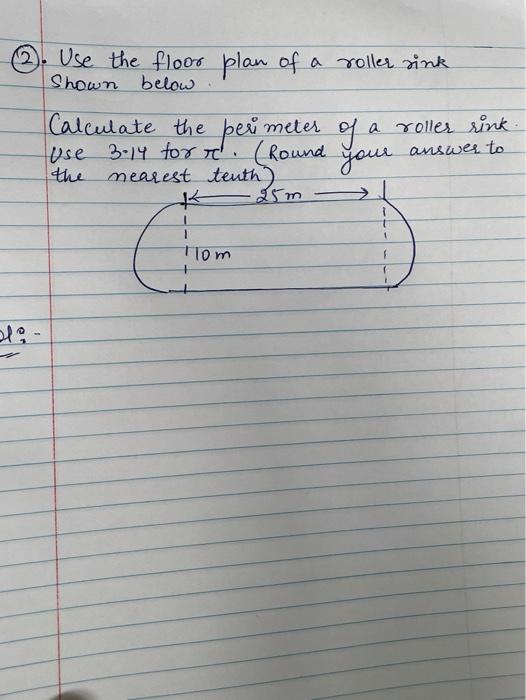 (2). Use the floor plan of a roller rink
Shown below.
Calculate the perimeter of a roller rink.
Use 3.14 for π. (Round your answer to
the nearest tenth)
25m
10m
ol:-